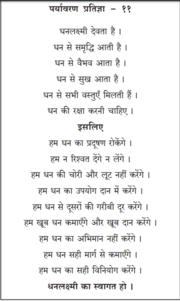 पर्यावरण प्रतिज्ञा - ११
धनलक्ष्मी देवता है ।
धन से समृद्धि आती है ।
धन से वैभव आता है ।
धन से सुख आता है ।
धन से सभी वस्तुएँ मिलती हैं ।
धन की रक्षा करनी चाहिए ।
इसलिए
हम धन का प्रदूषण रोकेंगे ।
हम न रिश्वत देंगे न लेंगे ।
हम धन की चोरी और लूट नहीं करेंगे ।
हम धन का उपयोग दान में करेंगे ।
हम धन से दूसरों की गरीबी दूर करेंगे ।
हम खूब धन कमाएँगे और खूब दान करेंगे ।
हम धन का अभिमान नहीं करेंगे ।
हम धन सही मार्ग से कमाएँगे ।
हम धन का सही विनियोग करेंगे ।
धनलक्ष्मी का स्वागत हो ।